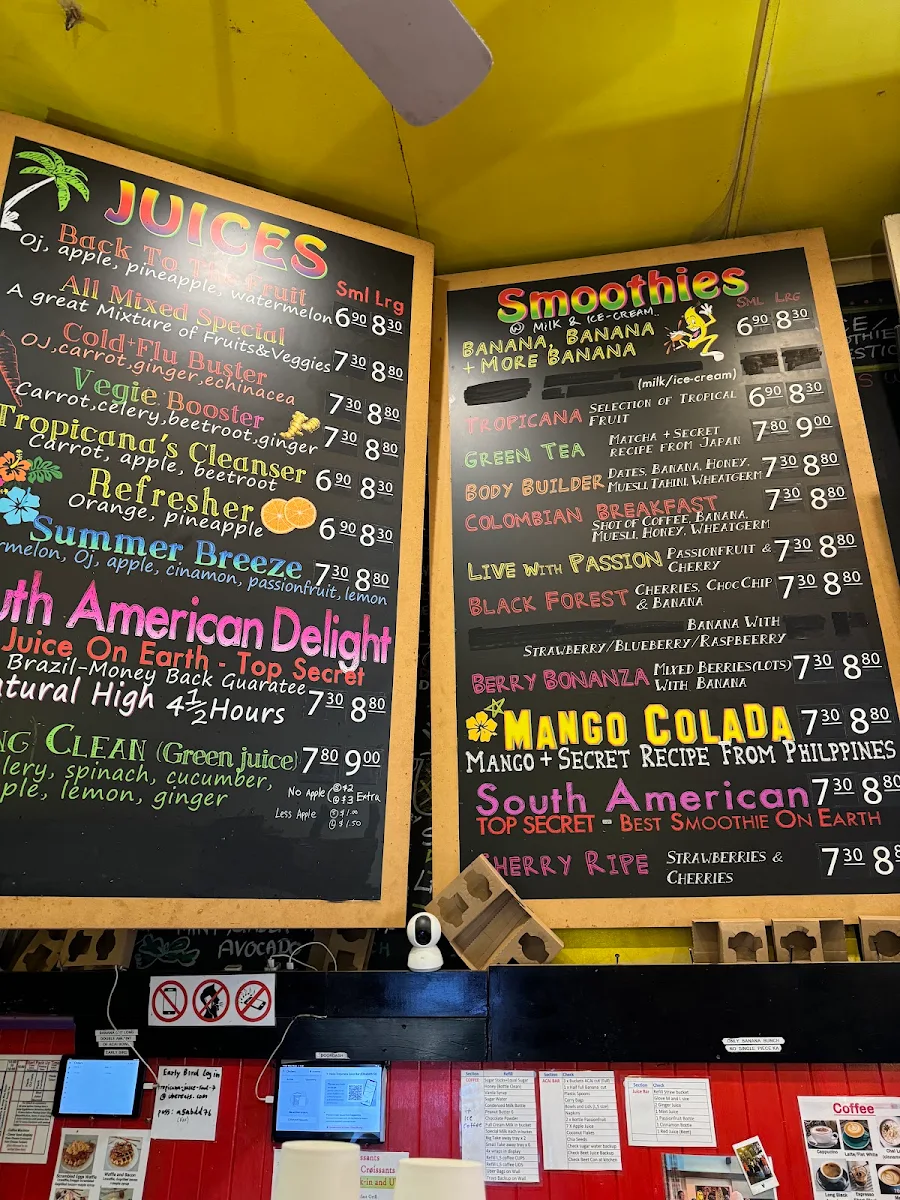 JUICES
Sml Lrg
Back To The Fruit
Oj, apple, pineapple, watermelon 6.90 8.30
All Mixed Special
A great Mixture of Fruits&Veggies 7.30 8.80
Cold+Flu Buster
OJ,carrot,ginger,echinacea 7.30 8.80
Vegie Booster
Carrot,celery,beetroot,ginger 7.30 8.80
Tropicana's Cleanser
Carrot, apple, beetroot 6.90 8.30
Refresher
Orange, pineapple 6.90 8.30
Summer Breeze
rmelon, Oj, apple, cinamon, passionfruit, lemon 7.30 8.80
uth American Delight
Juice On Earth - Top Secret
Brazil-Money Back Guaratee
atural High 4½Hours 7.30 8.80
NG CLEAN (Green juice) 7.80 9.00
lery, spinach, cucumber,
ple, lemon, ginger
No Apple $2
$3 Extra
Less Apple $1.00
$1.50
Smoothies
SML LRG
W MILK & ICE-CREAM
BANANA, BANANA
+ MORE BANANA 6.90 8.30
(milk/ice-cream)
TROPICANA SELECTION OF TROPICAL FRUIT 6.90 8.30
GREEN TEA MATCHA + SECRET RECIPE FROM JAPAN 7.80 9.00
BODY BUILDER DATES, BANANA, HONEY, MUESLI, TAHINI, WHEATGERM 7.30 8.80
COLOMBIAN BREAKFAST 7.30 8.80
SHOT OF COFFEE, BANANA,
MUESLI, HONEY, WHEATGERM
LIVE WITH PASSION PASSIONFRUIT & CHERRY 7.30 8.80
BLACK FOREST CHERRIES, CHOC CHIP & BANANA 7.30 8.80
BANANA WITH
STRAWBERRY/BLUEBERRY/RASPBEERRY
BERRY BONANZA MIXED BERRIES(LOTS) WITH BANANA 7.30 8.80
MANGO COLADA 7.30 8.80
MANGO + SECRET RECIPE FROM PHILPPINES
SOUTH AMERICAN 7.30 8.80
TOP SECRET - BEST SMOOTHIE ON EARTH
HERRY RIPE STRAWBERRIES & CHERRIES 7.30 8
AVOCADO
ONLY BANANA BUNCH
NO SINGLE PIECE
DOORDASH
Early Bird Log in
Section
Refill
COFFEE
Section
Check
Section
Check
Coffee
Cappuccino
Long Black